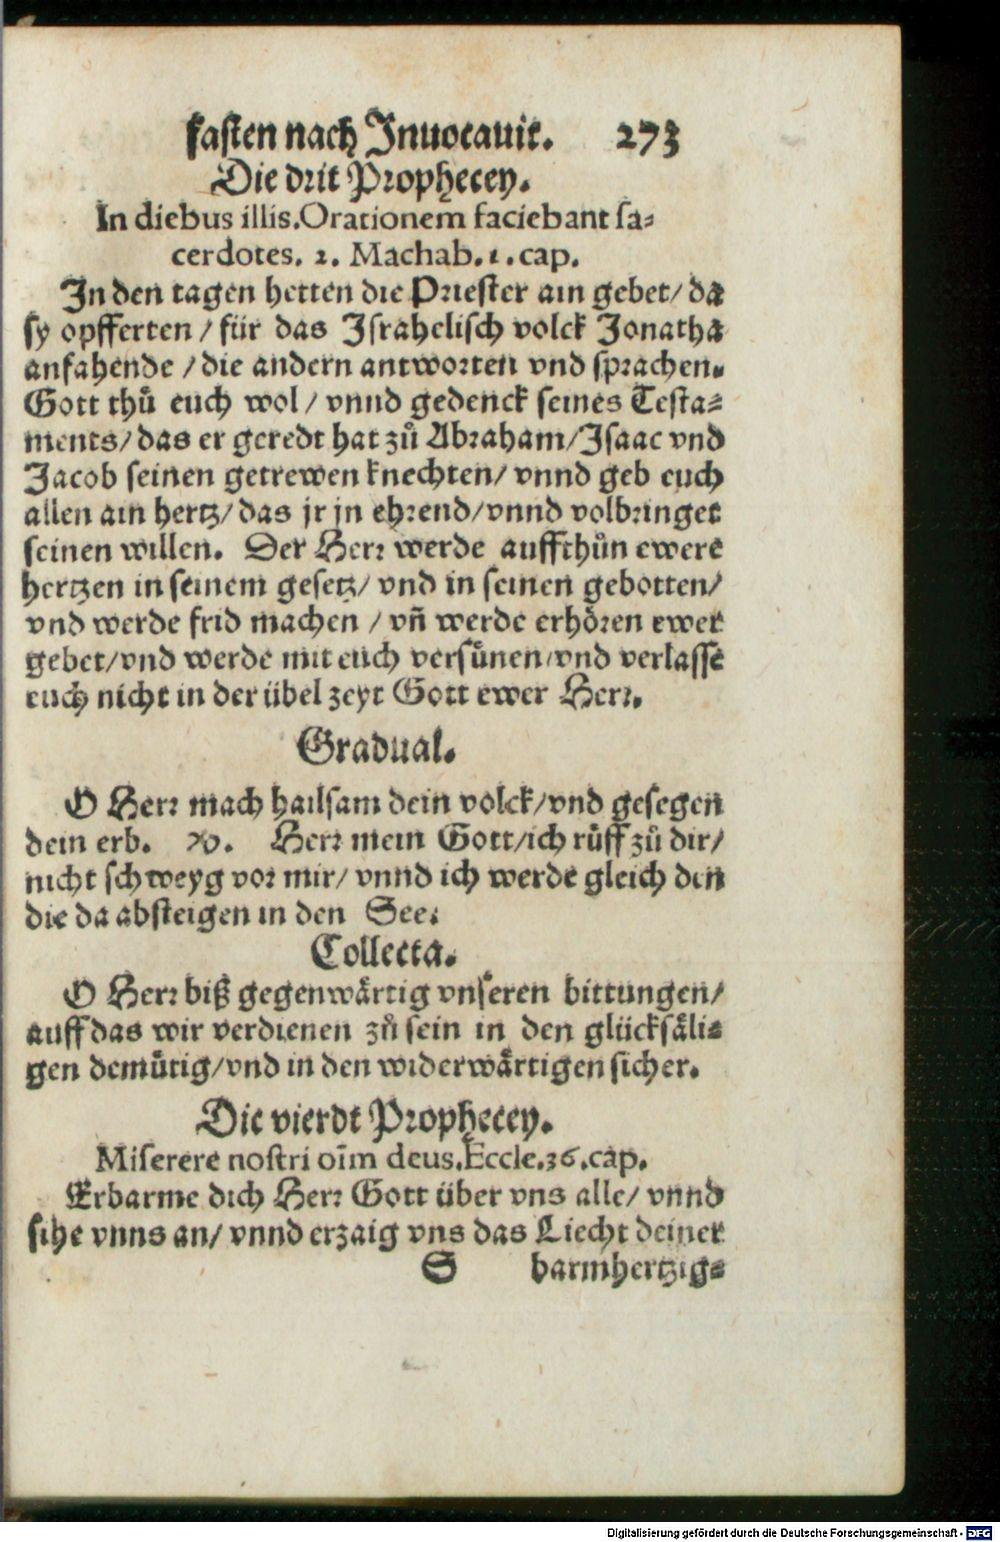 fasten nach Inuocauit. 273
Die drit Prophecey.
In diebus illis. Orationem faciebant sa⸗
cerdotes. 2. Machab. 1. cap.
In den tagen hetten die Priester ain gebet/ da
sy opfferten / für das Israhelisch volck Jonatha
anfahende / die andern antworten vnd sprachen.
Gott thuͦ euch wol / vnnd gedenck seines Testa⸗
ments/ das er geredt hat zuͦ Abraham/ Isaac vnd
Jacob seinen getrewen knechten/ vnnd geb euch
allen ain hertz/ das jr jn ehrend/ vnnd volbringet
seinen willen. Der Herr werde auffthuͦn ewere
hertzen in seinem gesetz/ vnd in seinen gebotten/
vnd werde frid machen / vñ werde erhoͤren ewer
gebet/ vnd werde mit euch versuͤnen/ vnd verlasse
euch nicht in der übel zeyt Gott ewer Herr.
Gradual.
O Herr mach hailsam dein volck/ vnd gesegen
dein erb. ℣. Herr mein Gott/ ich ruͤff zuͦ dir/
nicht schweyg vor mir/ vnnd ich werde gleich den
die da absteigen in den See.
Collecta.
O Herr biß gegenwaͤrtig vnseren bittungen/
auff das wir verdienen zuͦ sein in den glücksaͤli⸗
gen demuͤtig/ vnd in den widerwaͤrtigen sicher.
Die vierdt Prophecey.
Miserere nostri oīm deus. Eccle. 36. cap.
Erbarme dich Herr Gott über vns alle/ vnnd
sihe vnns an/ vnnd erzaig vns das Liecht deiner
S barmhertzig⸗
Digitalisierung gefördert durch die Deutsche Forschungsgemeinschaft - DFG